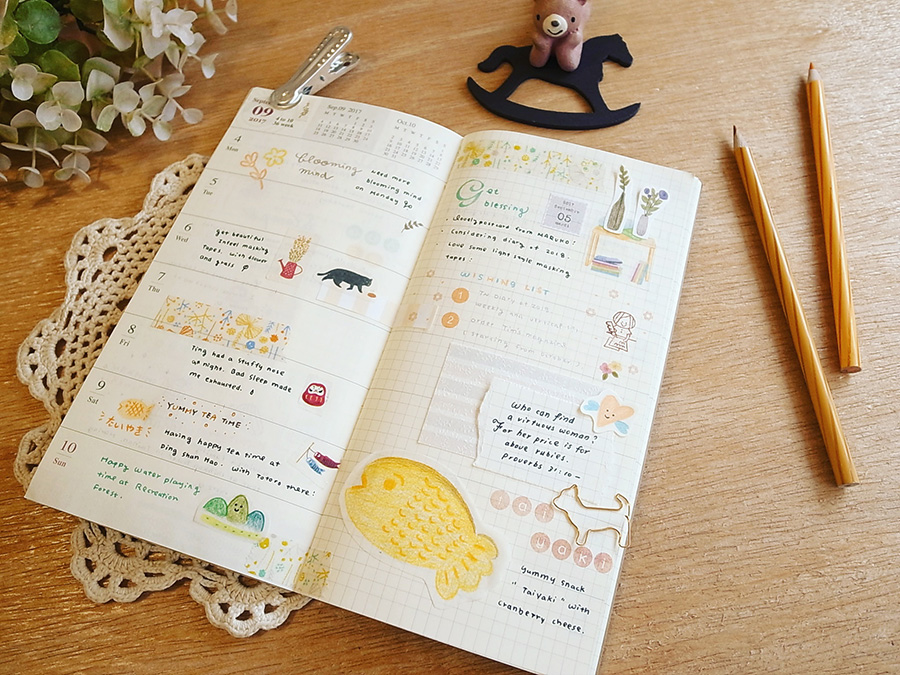 September
09
2017
4 to 10
36 week
Sep.09 2017
Oct.10
M T W T F S S
M T W T F S S
4
Mon
blooming
mind
need more
blooming mind
on Monday
5
Tue
6
Wed
got beautiful
masking
tapes, with flower
and grass
7
Thu
8
Fri
Ting had a stuffy nose
at night. Bad sleep made
me exhausted.
9
Sat
たいやき
YUMMY TEA TIME
Having happy tea time at
Ding Shan Hao. with Totoro there!
10
Sun
Happy water playing
time at Recreation
Forest.
Get
blessing
2017
September
05
lovely postcard from
Considering diary of 2018.
Love some light style masking
tapes!
WISHING LIST
1
2
Who can find
a virtuous woman?
For her price is far
above rubies.
Proverbs 31:10~
tai
yaki
yummy snack
"Taiyaki" with
cranberry cheese.